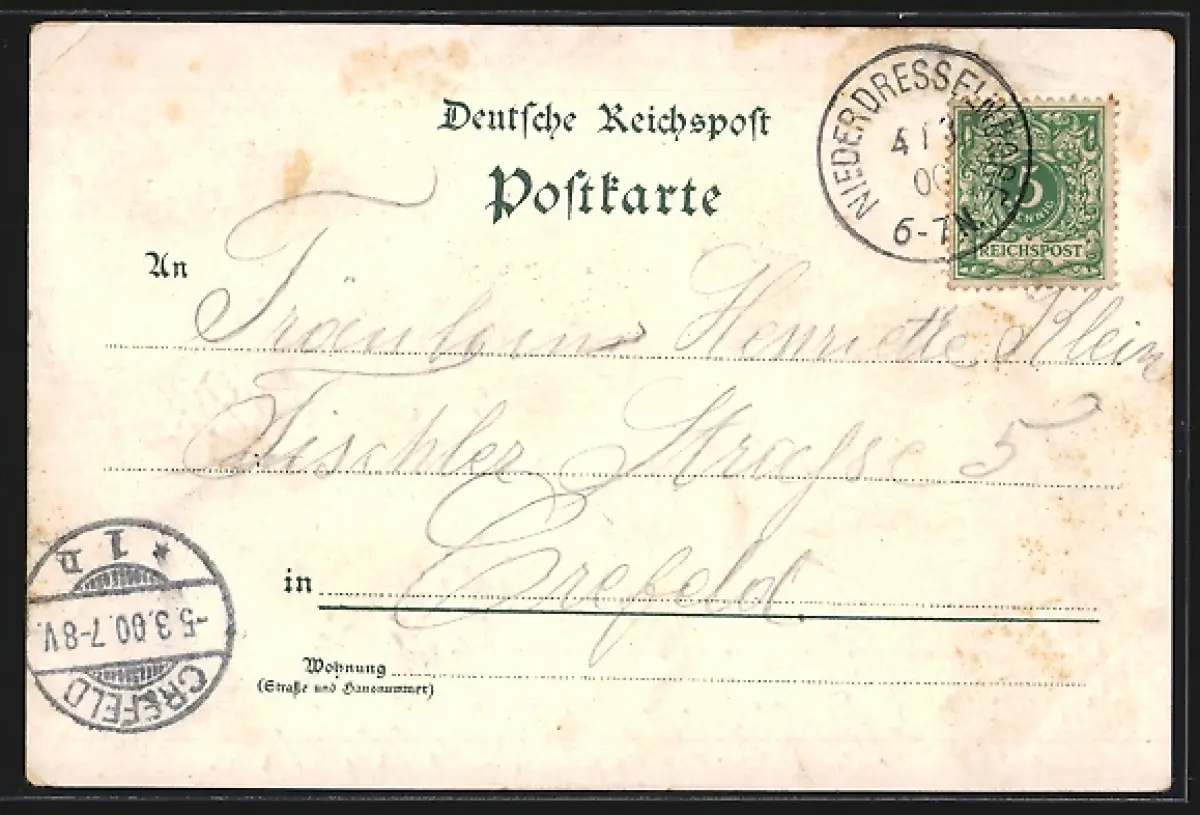 Deutsche Reichspost
Postkarte
NIEDERDRESSELNDORF
4 13
00
6-7N.
5
PFENNIG
REICHSPOST
An
Fräulein Henriette Klein
Tischler Strasse 5
in Crefeld.
Wohnung
(Straße und Hausnummer)
* 1 D
-5.3.00.7-8V.
CREFELD